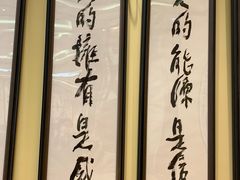 的能源是
的擁有是感